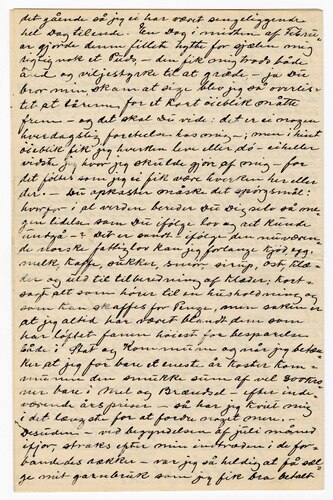 det gående så jeg ei har været sengeliggende
hel Dag tilende. En Dag i midten af Febru-
ar gjorde denne fillete hytte for sjælen mig
rigtig nok et Puds, – den fik mig trods både
ånd og viljestyrke til at græde, – ja Du
tror min skam at sige blev jeg så overlis-
tet at tårerne for et kort øieblik måtte
frem – og det skal Du vide: det er ei nogen
hverdagslig foreteelse hos mig –; men i hint
øieblik fik jeg hverken leve eller dø – ei heller
vidste jeg hvor jeg skulde gjør af mig – for
det føltes som jeg ei fik være hverken her eller
der. Du opkaster måske det spørgsmål:
hvorfor i al verden bereder Du Dig selv så me-
gen lidelse som Du ifølge lov og ret kunde
undgå –? Det er sandt: ifølge den nuværen-
de norske fattiglov kan jeg forlange kjød, æg,
melk, kaffe, sukker, smør, sirup, ost, klæ-
der og uld til tilberedning af klæder, kort-
sagt alt som hører til en husholdning og
som kan skaffes for Penge, men saken er
at jeg altid har været blandt dem som
har løftet fanen høiest for besparelse
både i Stat og Kommune og når jeg betæn-
ker at jeg for bare et eneste år koster kom-
munen den smukke sum af vel 300 kro-
ner bare i Mel og Brændsel – efter inde-
værende års priser – så har jeg kviet mig
i det længste for at fordre noget mere.
Desuden – ved begyndelsen af juli måned
ifjor, straks efter min indtræden i de for-
bandedes rækker – var jeg så heldig at få sæl-
ge mit garnbruk som jeg fik bra betalt